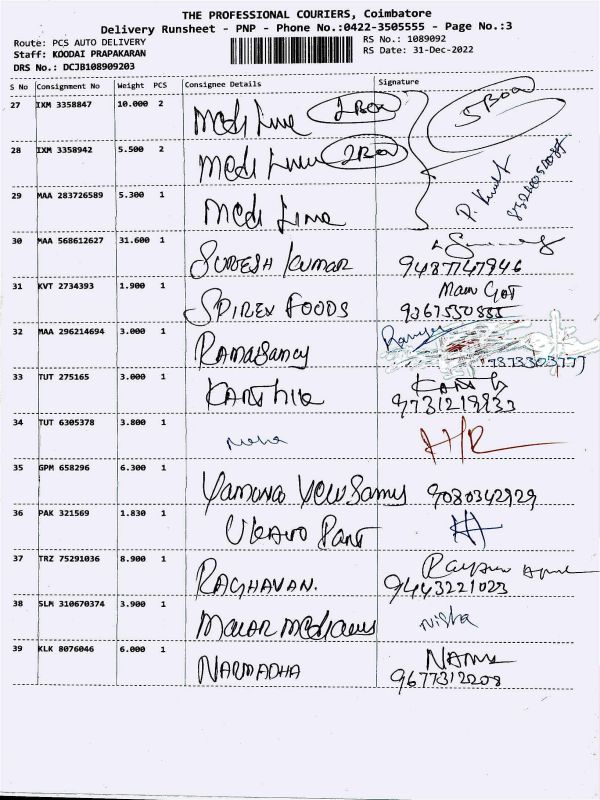 THE PROFESSIONAL COURIERS, Coimbatore
Delivery Runsheet - PNP - Phone No.:0422-3505555 - Page No.:3
Route: PCS AUTO DELIVERY RS No.: 1089092
Staff: KOODAI PRAPAKARAN RS Date: 31-Dec-2022
DRS No.: DCJB108909203
S No Consignment No Weight PCS Consignee Details Signature
27 IXM 3358847 10.000 2 Medi Line 2 Box 5 Box
28 IXM 3358942 5.500 2 Medi Line 2 Box
29 MAA 283726589 5.300 1 Medi Line
30 MAA 568612627 31.600 1 SURESH KUMAR
9487747946
31 KVT 2734393 1.900 1 SPIREX FOODS Main Got
9367550888
32 MAA 296214694 3.000 1 RAMASAMY
7373303777
33 TUT 275165 3.000 1 KARTHIK
9731218933
34 TUT 6305378 3.800 1 H/R
35 GPM 658296 6.300 1 9080342929
36 PAK 321569 1.830 1
37 TRZ 75291036 8.900 1 RAGHAVAN.
9443221023
38 SLM 310670374 3.900 1 Nisha
39 KLK 8076046 6.000 1 NARMADHA
9677312208